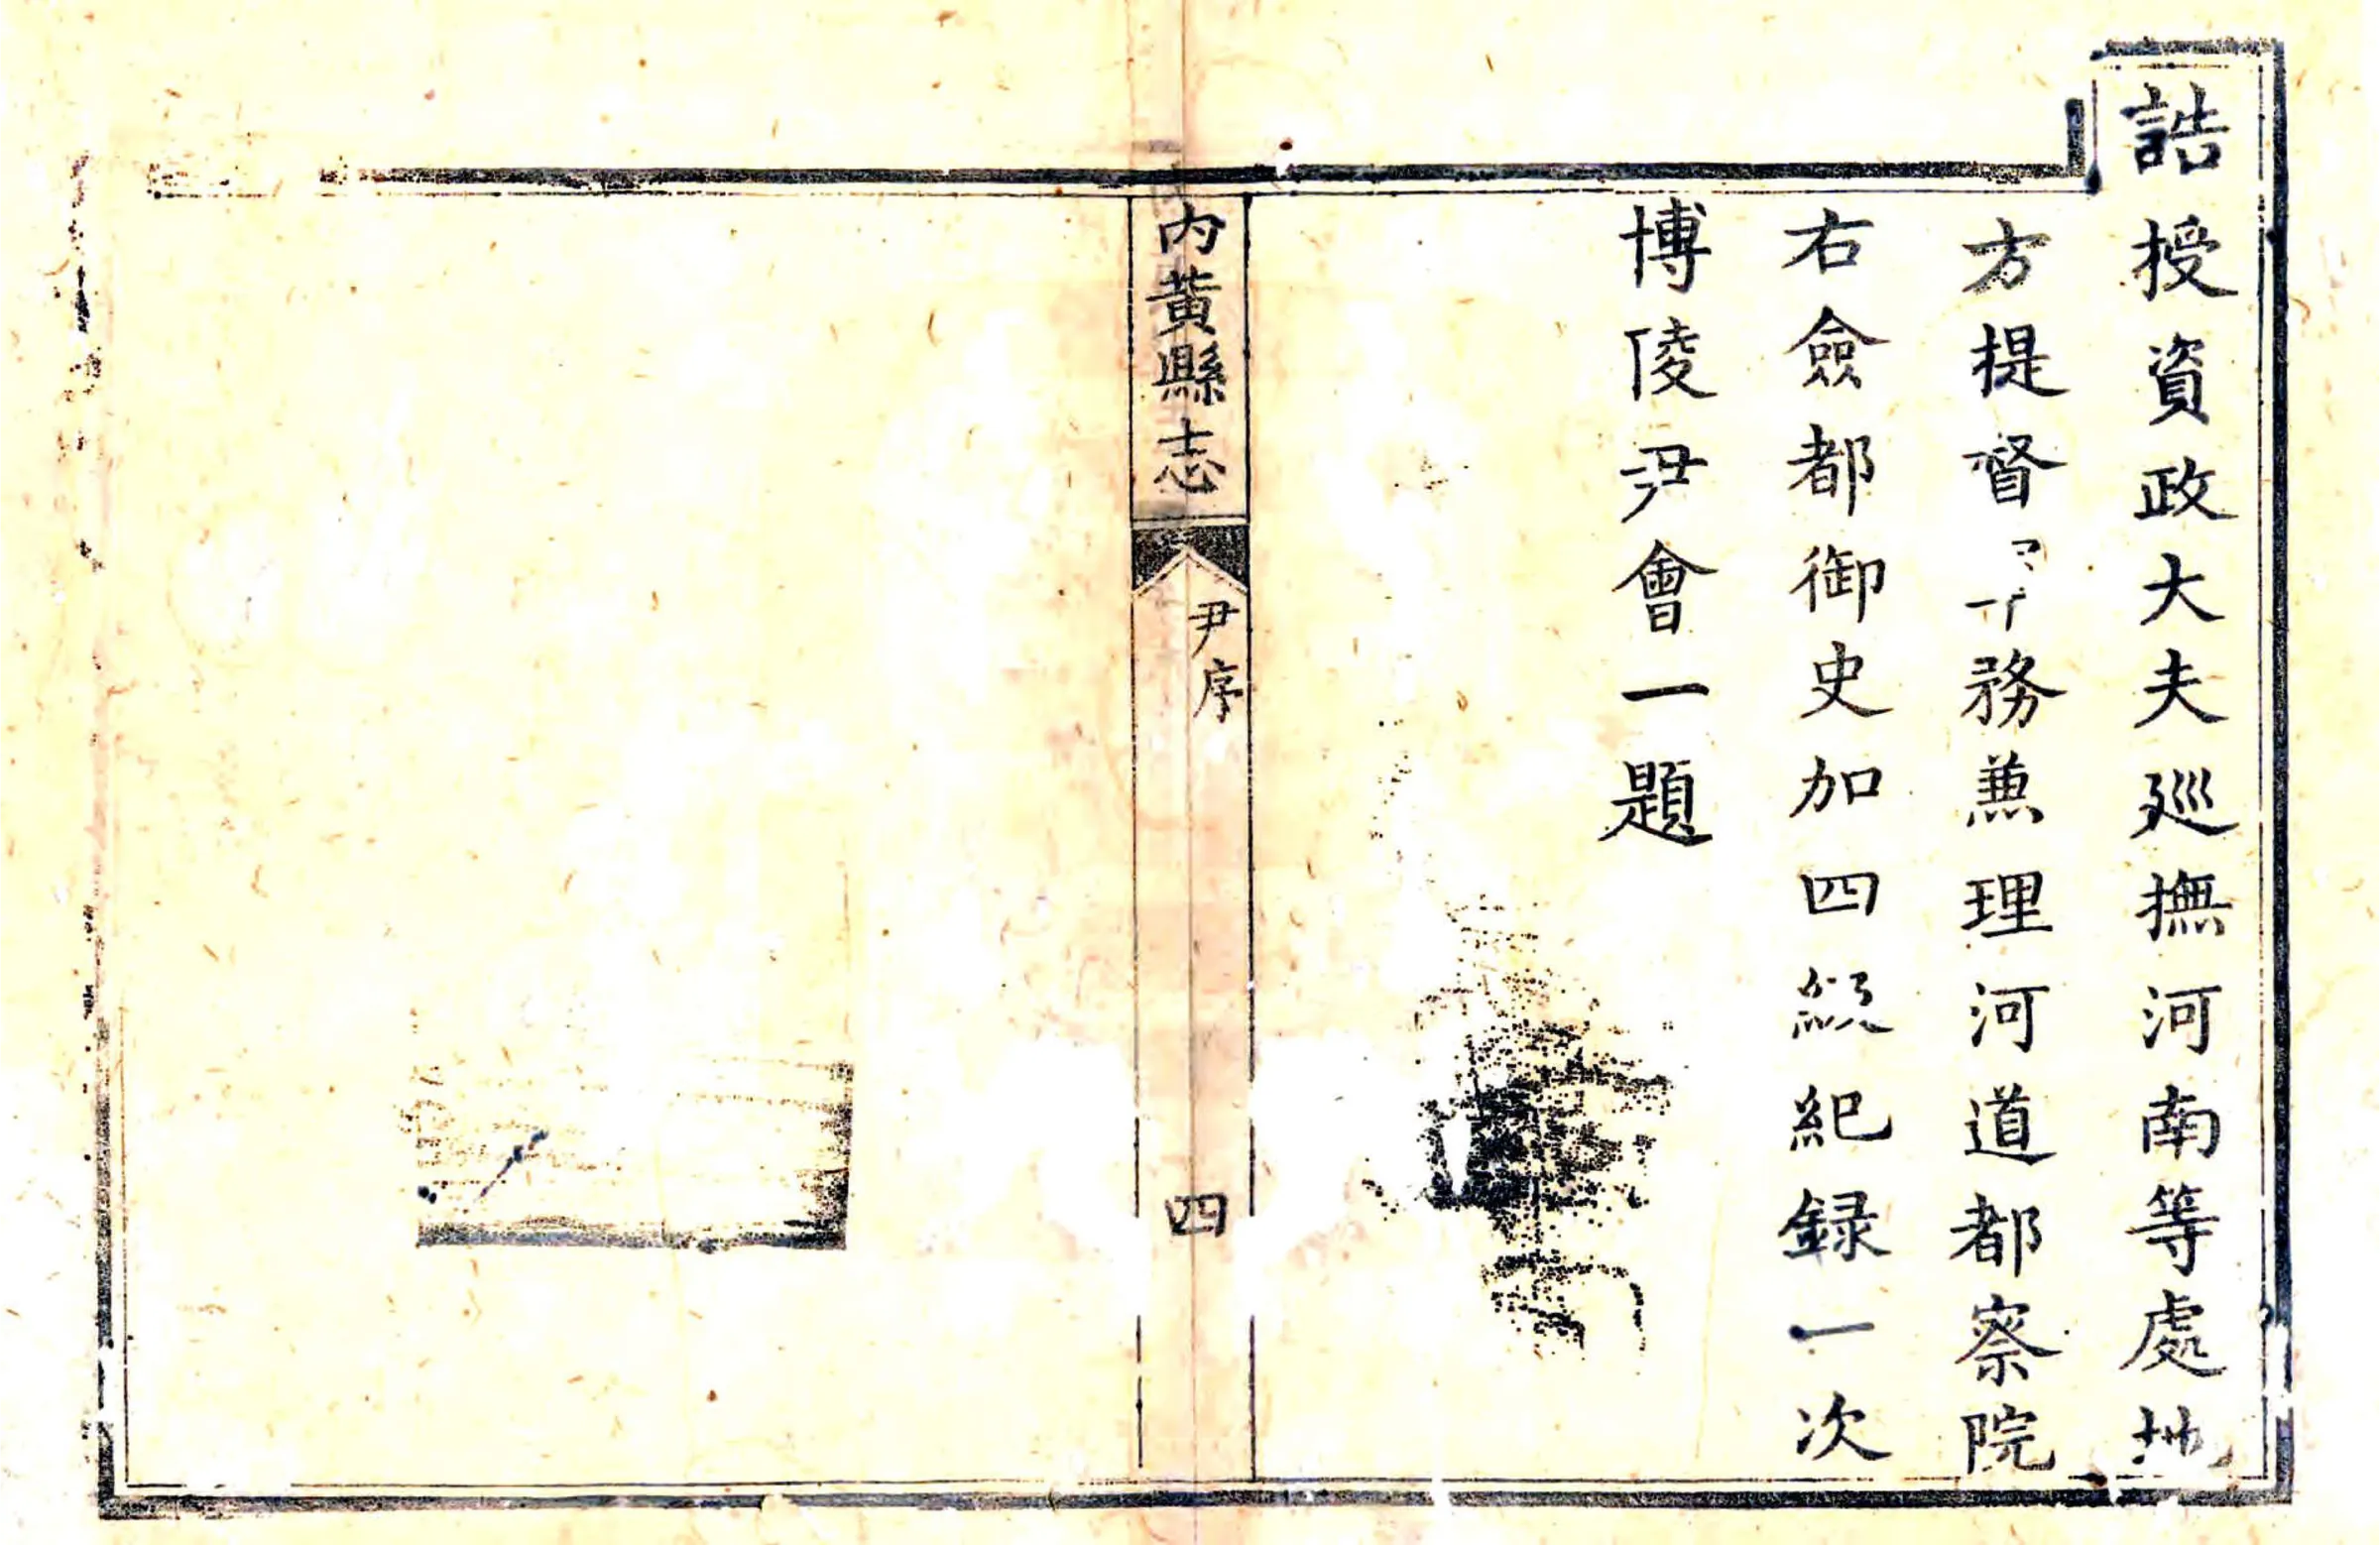 誥授資政大夫廵撫河南等處地
方提督務兼理河道都察院
右僉都御史加四級紀録一次
博陵尹會一題
内黃縣志
尹序
四